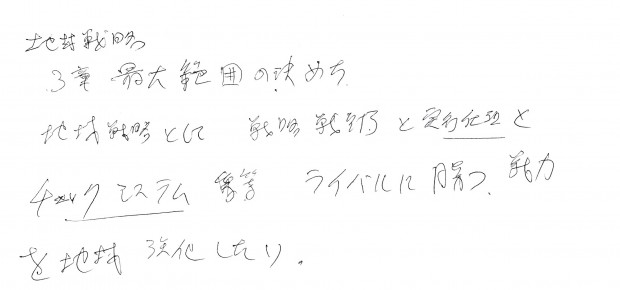 地域戦略
3章 最大範囲の決め方
地域戦略として 戦略戦術と実行仕政と
チェックシステム 等 ライバルに勝つ、戦力
を地域 強化したり。